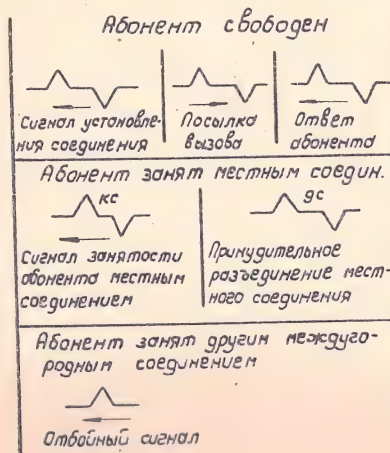 Абонент свободен
Сигнал установле-
ния соединения
Посылка
вызова
Ответ
абонента
Абонент занят местным соедин.
кс
Сигнал занятости
абонента местным
соединением
дс
Принудительное
разъединение мест-
ного соединения
Абонент занят другим междуго-
родным соединением
Отбойный сигнал